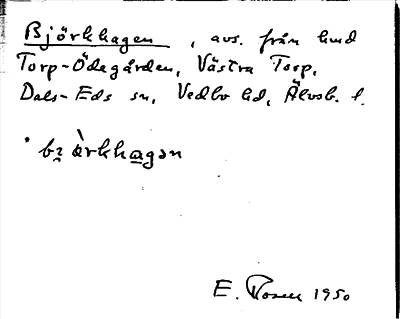 Björkhagen, avs. från hmd
Torp-Ödegården, Västra Torp,
Dals-Eds sn, Vedbo hd, Älvsb. l.
* bɀ ὰrkhagən
E. Rosen 1950